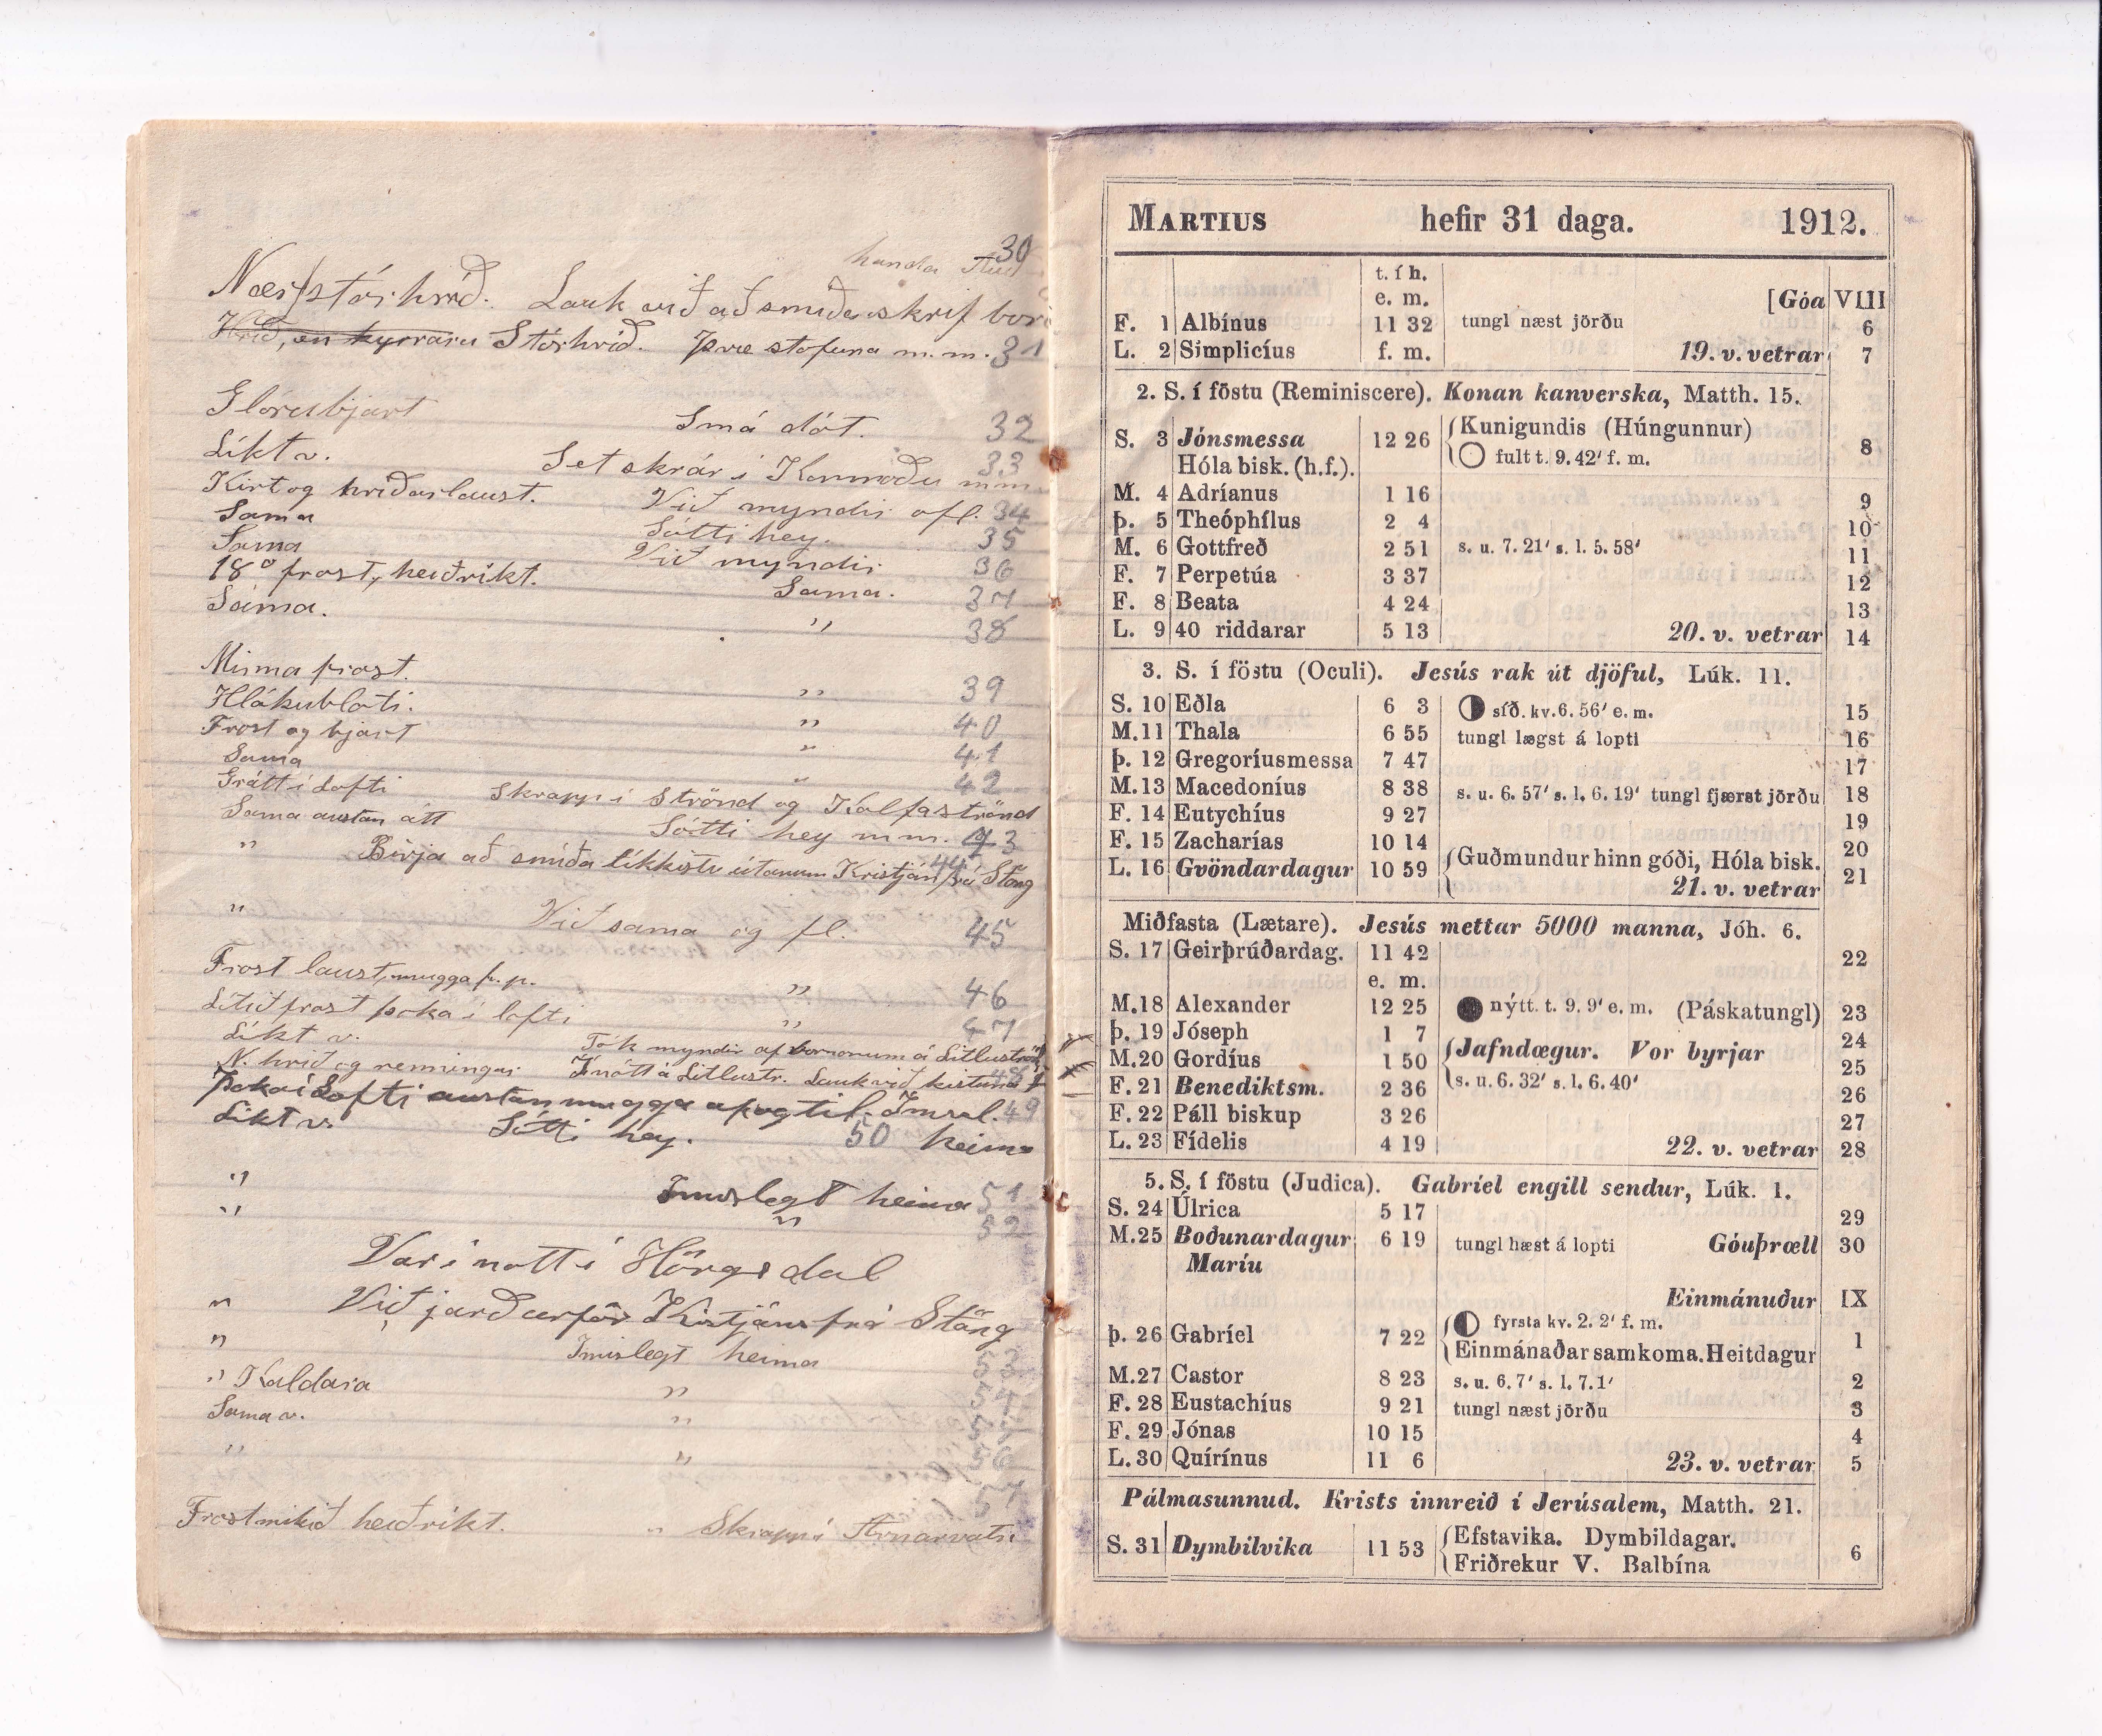 handa 30
Lauk við að smíða skrif
Stórhríð. Þvæ stofuna m.m. 31
Glórubjart Smá dót. 32
Líkt v. Set skrár í Kommóðu m m 33
Kirt og hríðarlaust. Við myndir ofl. 34
Sama Sótti hey. 35
Sama Við myndir 36
18° frost, heiðríkt. Sama. 37
Sama. " 38
Minna frost. " 39
Hlákubloti. " 40
Frost og bjart " 41
Sama " 42
Grátt í Lofti Skrapp í Strönd og Kalfaströnd
Sama austan átt Sótti hey m m. 43
" Birja að smíða líkkistu útanum Kristján frá Stöng 44
" Við sama og fl. 45
Frost laust, mugga p.p. " 46
Lítið frost þoka í lofti " 47
Líkt v. Tók myndir af börnonum á Litluströnd
N. hríð og renningur Í nótt á Litlustr. Lauk við kistuna 48
Þoka í Lofti austan mugga af og til. Imsl. 49
Líkt v. Sótti hey. 50 heima
" Imislegt heima 51
" " 52
Var í nott í Hörgsdal
" Við jarðarför Kristjáns frá Stöng
" Imislegt heima 53
" Kaldara " 54
Sama v. "
" " 56
57
Frost mikið heiðrikt. " Skrapp í Arnarvatn.
MARTIUS hefir 31 daga. 1912.
t. í h.
e. m. [Góa VIII
F. 1 Albínus 11 32 tungl næst jörðu 6
L. 2 Simplicíus f. m. 19. v. vetrar 7
2. S. í föstu (Reminiscere). Konan kanverska, Matth. 15.
S. 3 Jónsmessa 12 26 Kunigundis (Húngunnur) 8
Hóla bisk. (h.f.). fult t. 9. 42' f. m.
M. 4 Adríanus 1 16 9
Þ. 5 Theóphílus 2 4 10
M. 6 Gottfreð 2 51 s. u. 7. 21' s. l. 5. 58' 11
F. 7 Perpetúa 3 37 12
F. 8 Beata 4 24 13
L. 9 40 riddarar 5 13 20. v. vetrar 14
3. S. í föstu (Oculi). Jesús rak út djöful, Lúk. 11.
S. 10 Eðla 6 3 síð. kv. 6. 56' e. m. 15
M. 11 Thala 6 55 tungl lægst á lopti 16
Þ. 12 Gregoríusmessa 7 47 17
M. 13 Macedoníus 8 38 s. u. 6. 57' s. l. 6. 19' tungl fjærst jörðu 18
F. 14 Eutychíus 9 27 19
F. 15 Zacharías 10 14 20
L. 16 Gvöndardagur 10 59 Guðmundur hinn góði, Hóla bisk. 21
21. v. vetrar
Miðfasta (Lætare). Jesús mettar 5000 manna, Jóh. 6.
S. 17 Geirþrúðardag. 11 42 22
e. m.
M. 18 Alexander 12 25 nýtt. t. 9. 9' e. m. (Páskatungl) 23
Þ. 19 Jóseph 1 7 24
M. 20 Gordíus 1 50 Jafndægur. Vor byrjar 25
F. 21 Benediktsm. 2 36 s. u. 6. 32' s. l. 6. 40' 26
F. 22 Páll biskup 3 26 27
L. 23 Fídelis 4 19 22. v. vetrar 28
5. S. í föstu (Judica). Gabríel engill sendur, Lúk. 1.
S. 24 Úlrica 5 17 29
M. 25 Boðunardagur 6 19 tungl hæst á lopti Góuþræll 30
Maríu
Einmánuður IX
Þ. 26 Gabríel 7 22 fyrsta kv. 2. 2' f. m. 1
Einmánaðarsamkoma. Heitdagur
M. 27 Castor 8 23 s. u. 6. 7' s. l. 7. 1' 2
F. 28 Eustachíus 9 21 tungl næst jörðu 3
F. 29 Jónas 10 15 4
L. 30 Quírínus 11 6 23. v. vetrar 5
Pálmasunnud. Krists innreið í Jerúsalem, Matth. 21.
S. 31 Dymbilvika 11 53 Efstavika. Dymbildagar. 6
Friðrekur V. Balbína